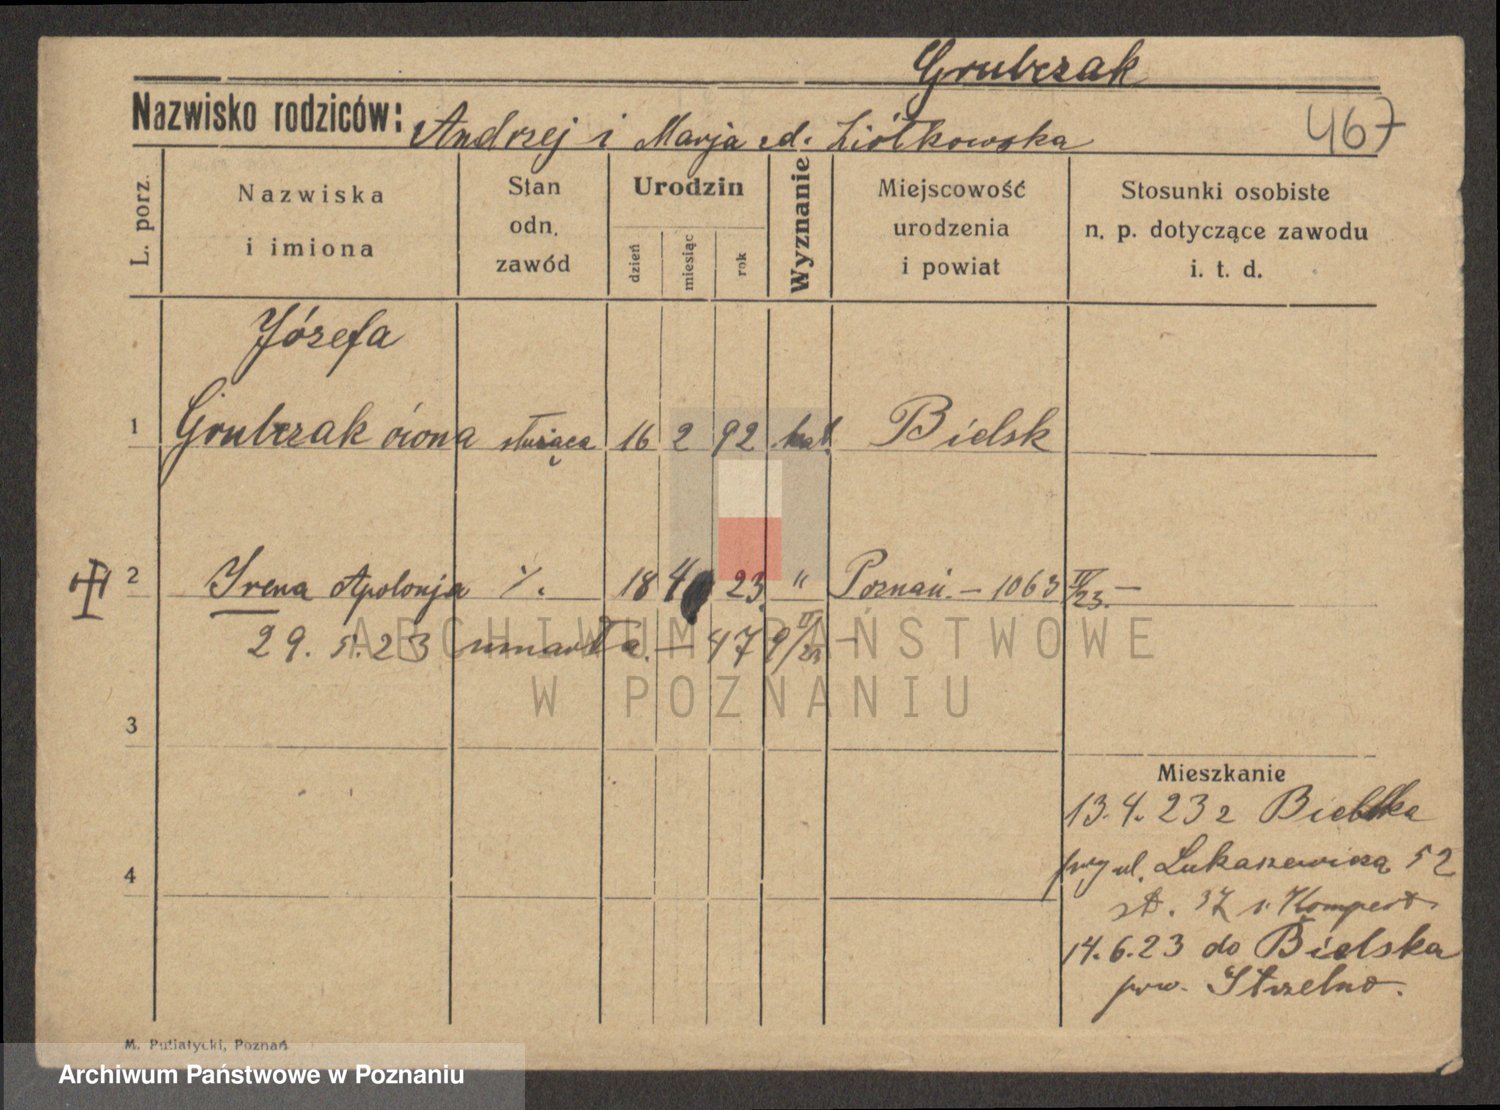 Grubczak
Nazwisko rodziców: Andrzej i Marja zd. Ziółkowska
467
L. porz.
Nazwiska
i imiona
Stan
odn.
zawód
Urodzin
dzień
miesiąc
rok
Wyznanie
Miejscowość
urodzenia
i powiat
Stosunki osobiste
n. p. dotyczące zawodu
i. t. d.
Józefa
1 Grubczak służąca 16 2 92 kat. Bielsk
2 Irena Apolonja 18 4 23. " Poznań. – 1063 IV/23. –
29. 5. 23 umarła. – 479 VI/23 –
ARCHIWUM PAŃSTWOWE
W POZNANIU
3
Mieszkanie
13. 4. 23 z Bielska
przy ul. Łukaszewicza 52
4
14. 6. 23 do Bielska
pow. Strzelno.
M. Putiatycki, Poznań
Archiwum Państwowe w Poznaniu